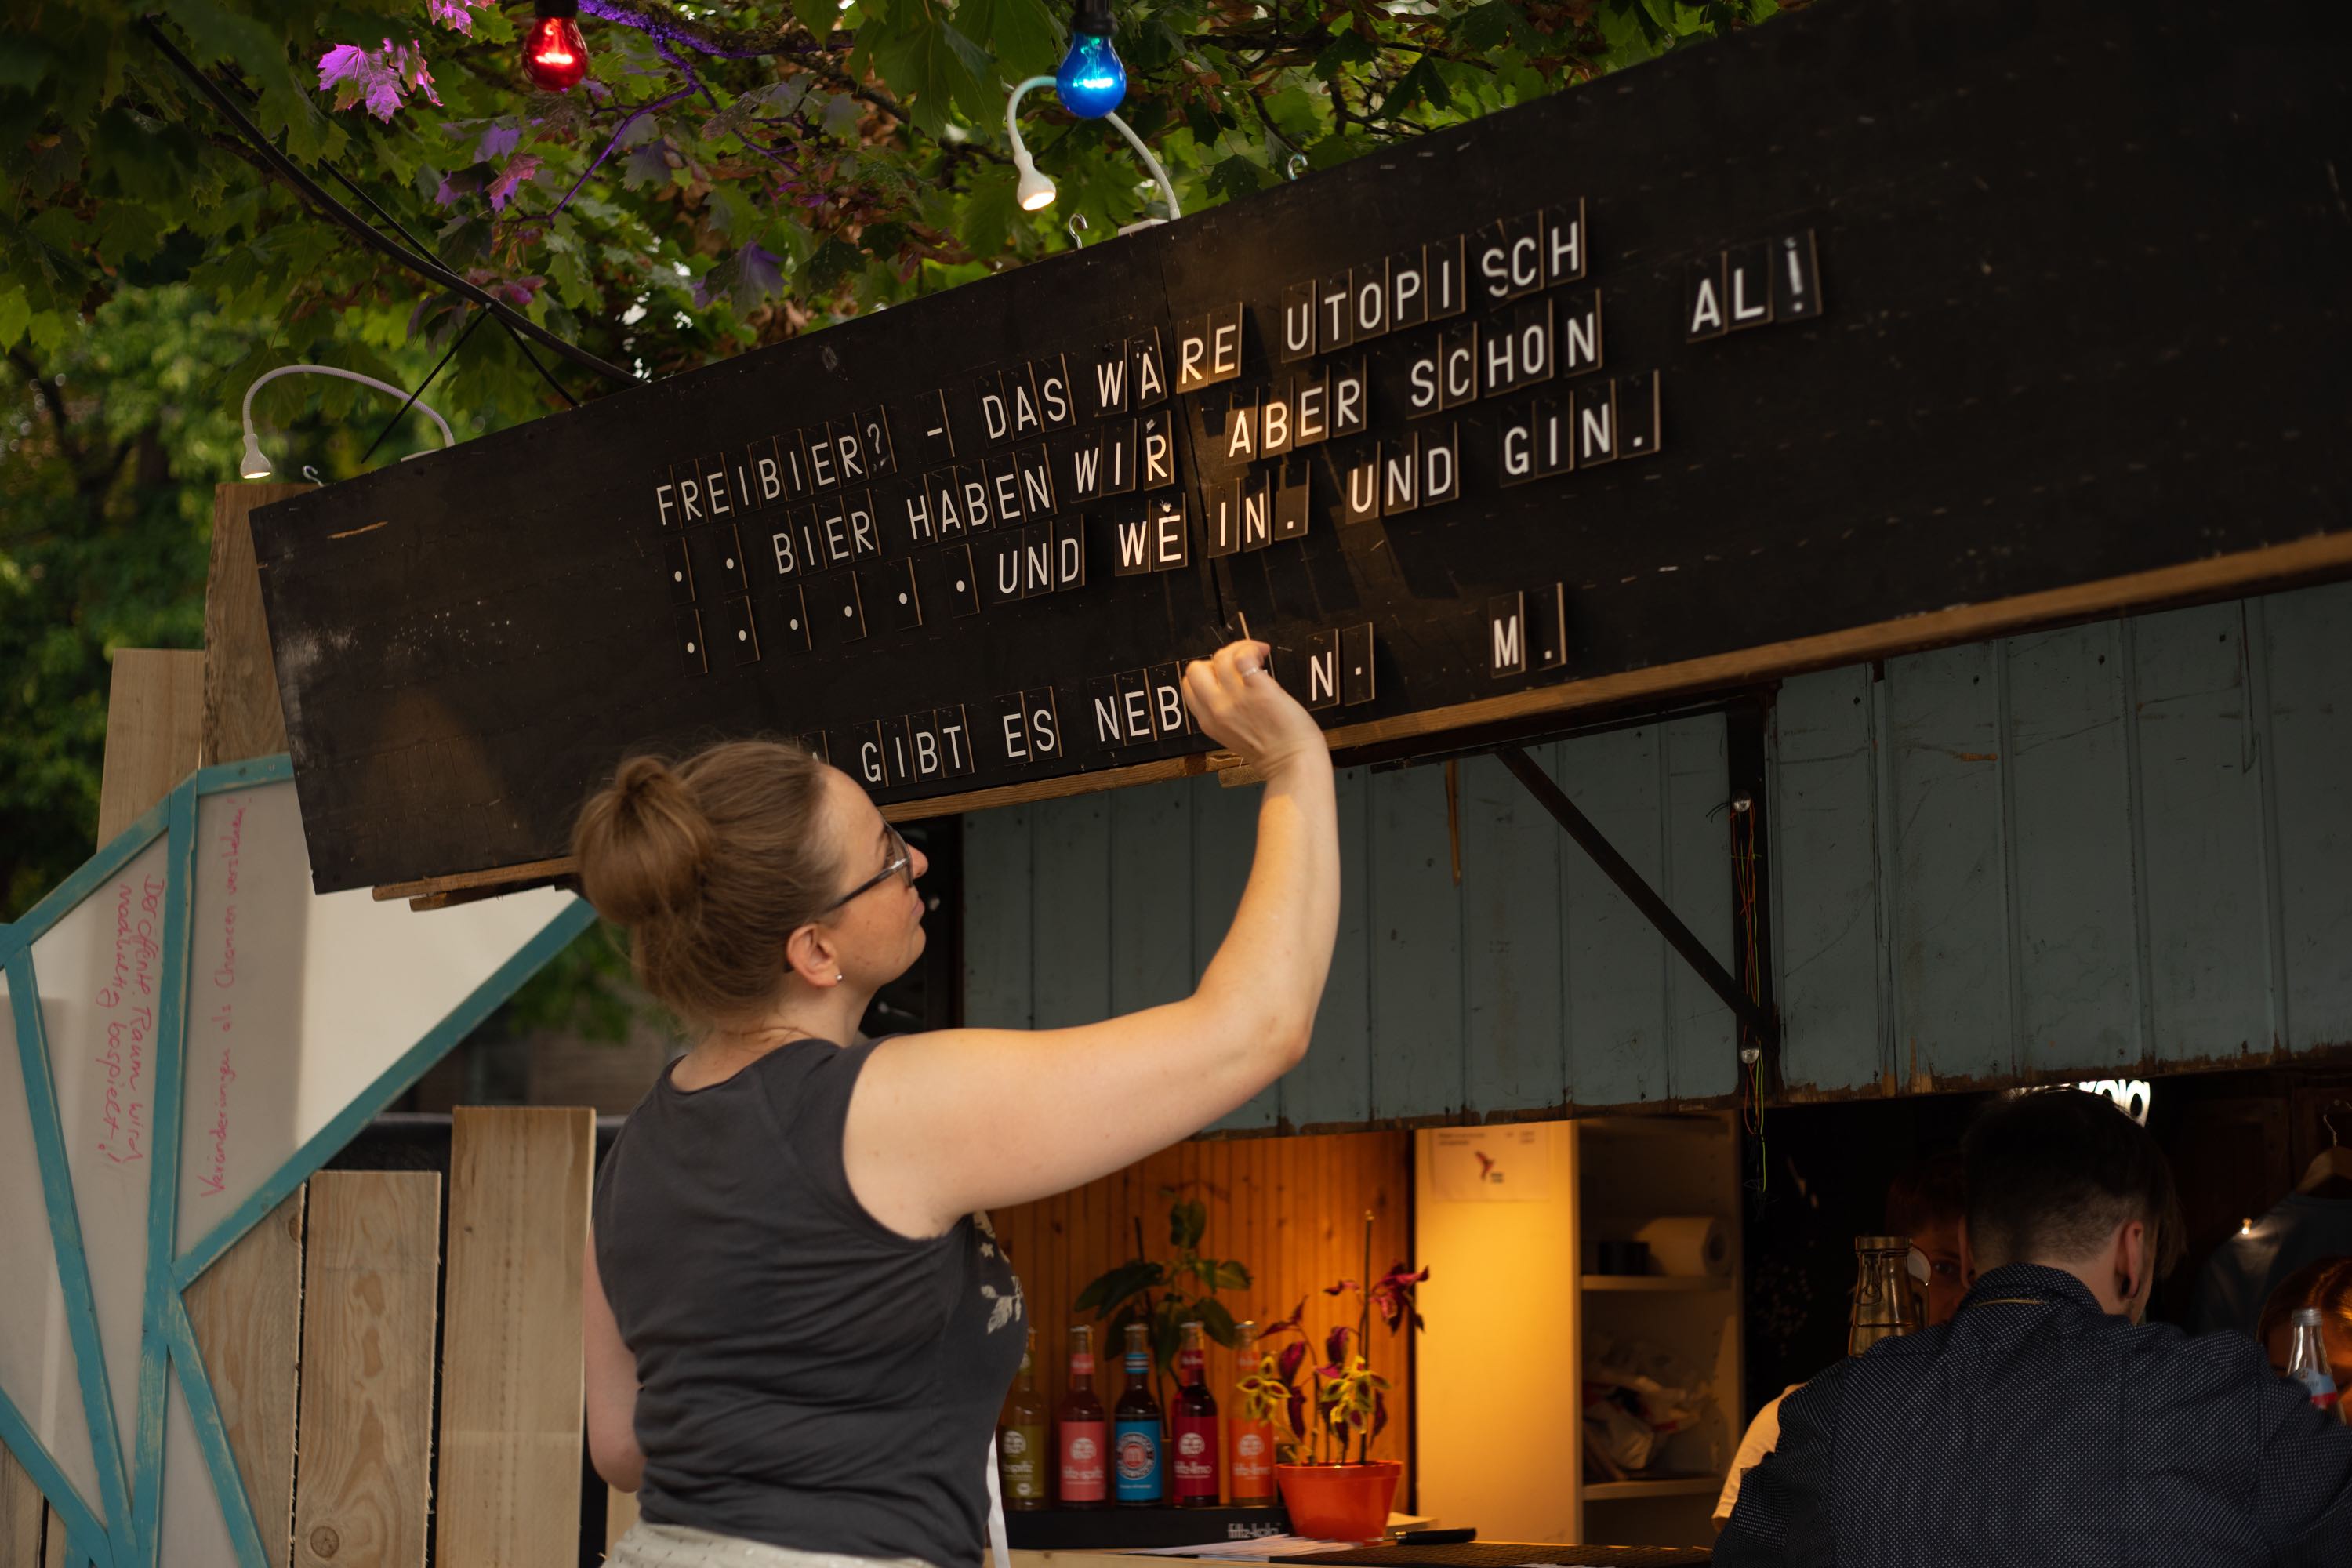 FREIBIER? - DAS WÄRE UTOPISCH AL!
. . BIER HABEN WIR ABER SCHON
. . . . . . UND WEIN. UND GIN.
GIBT ES NEB N. M.
Der öffentl. Raum wird
nachhaltig bespielt!
Veränderungen als Chancen verstehen!
fritz-limo
fritz-kola